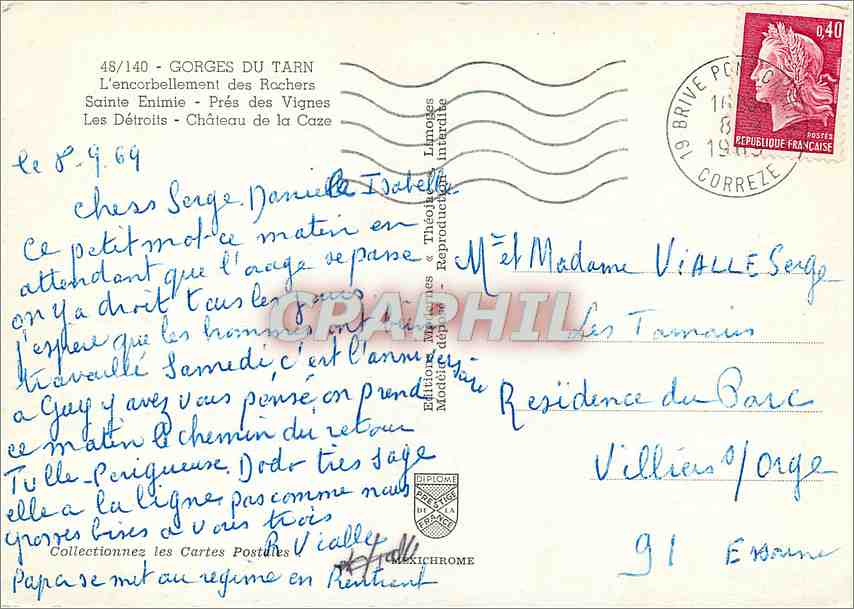 48/140 - GORGES DU TARN
L'encorbellement des Rochers
Sainte Enimie - Prés des Vignes
Les Détroits - Château de la Caze
le 8.9.69
chers Serge Danielle Isabelle
Ce petit mot ce matin en
attendant que l'orage se passe
on y a droit tous les jours
j'espère que les hommes ont bien
travaillé Samedi c'est l'anniversaire
a Guy y avez vous pensé on prend
ce matin le chemin du retour
Tulle - Perigueuse. Dodo tres sage
elle a la ligne pas comme nous
grosses bises a vous trois
R Vialle
Papa se met au régime en Rentrant
Collectionnez les Cartes Postales
Editions Modernes « Théojac » Limoges
Modèle déposé - Reproduction interdite
DIPLOME
PRESTIGE
DE LA
FRANCE
MEXICHROME
19 BRIVE
8
CORREZE
0,40
POSTES
REPUBLIQUE FRANÇAISE
CPAPHIL
Mr et Madame VIALLE Serge
Les
Résidence du Parc
Villiers s/ Orge
91 Essonne